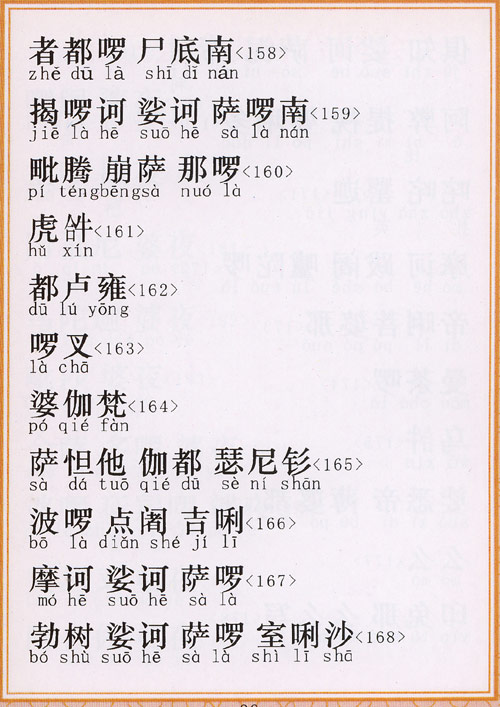 者都啰 尸底南<158>
zhě dū là shī dǐ nán
揭啰诃 娑诃 萨啰南<159>
jiē là hē suō hē sà là nán
毗腾 崩萨 那啰<160>
pí téngbēngsà nuó là
虎𤙖<161>
hǔ xín
都卢雍<162>
dū lú yōng
啰叉<163>
là chā
婆伽梵<164>
pó qié fàn
萨怛他 伽都 瑟尼钐<165>
sà dá tuō qié dū sè ní shān
波啰 点阇 吉唎<166>
bō là diǎn shé jí lī
摩诃 娑诃 萨啰<167>
mó hē suō hē sà là
勃树 娑诃 萨啰 室唎沙<168>
bó shù suō hē sà là shì lī shā